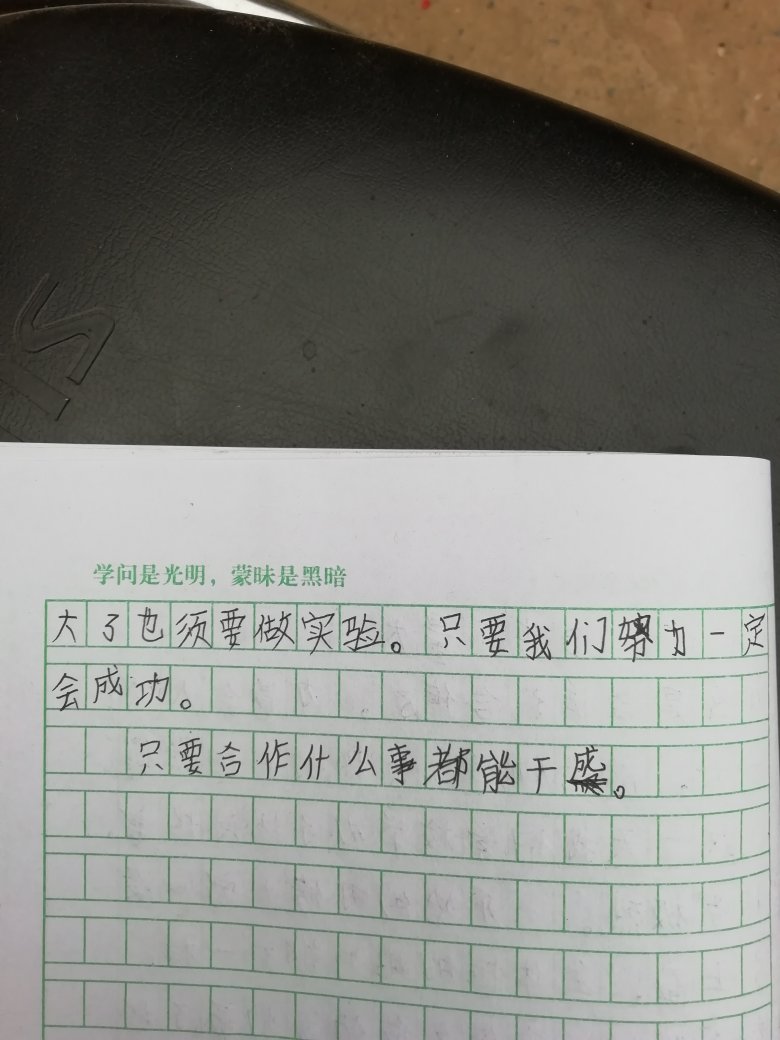 学问是光明，蒙昧是黑暗
大了也须要做实验。只要我们努力一定
会成功。
只要合作什么事都能干成。